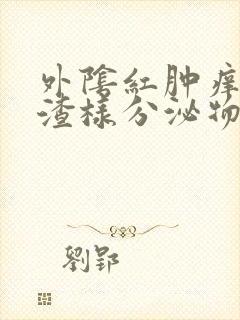 外陰紅肿痒
渣樣分泌物
劉郢